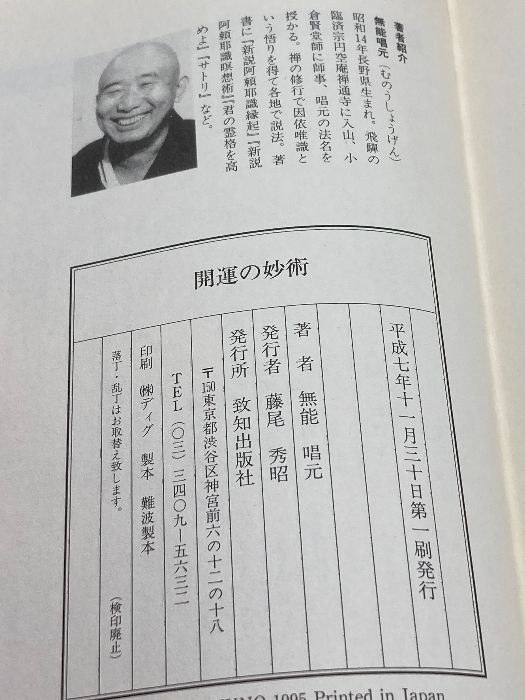 著者紹介
無能唱元（むのうしょうげん）
昭和14年長野県生まれ。飛騨の
臨済宗円空庵禅通寺に入山、小
倉賢堂師に師事、唱元の法名を
授かる。禅の修行で因依唯識と
いう悟りを得て各地で説法。著
書に『新説阿頼耶識縁起』『新説
阿頼耶識瞑想術』『君の霊格を高
めよ』『サトリ』など。
開運の妙術
平成七年十一月三十日第一刷発行
著者　無能　唱元
発行者　藤尾　秀昭
発行所　致知出版社
〒150東京都渋谷区神宮前六の十二の十八
TEL（〇三）三四〇九―五六三二
印刷　㈱ディグ　製本　難波製本
落丁・乱丁はお取替え致します。
（検印廃止）
1995 Printed in Japan